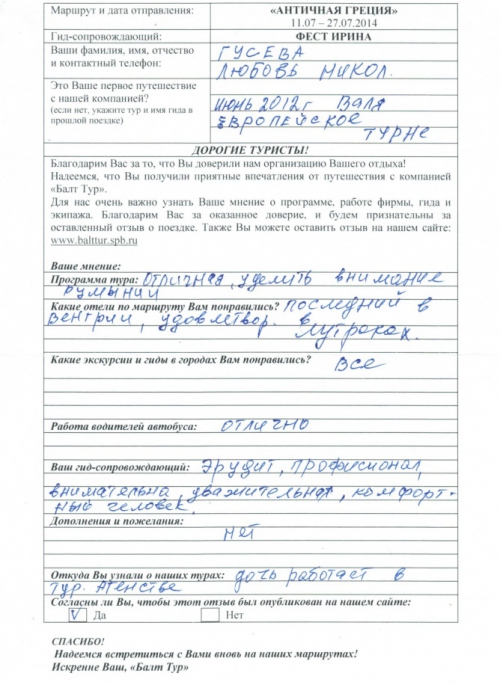 Маршрут и дата отправления:
«АНТИЧНАЯ ГРЕЦИЯ»
11.07 – 27.07.2014
Гид-сопровождающий:
ФЕСТ ИРИНА
Ваши фамилия, имя, отчество
и контактный телефон:
ГУСЕВА
ЛЮБОВЬ НИКОЛ.
Это Ваше первое путешествие
с нашей компанией?
(если нет, укажите тур и имя гида в
прошлой поездке)
ИЮНЬ 2012 г Валя
ЕВРОПЕЙСКОЕ
ТУРНЕ
ДОРОГИЕ ТУРИСТЫ!
Благодарим Вас за то, что Вы доверили нам организацию Вашего отдыха!
Надеемся, что Вы получили приятные впечатления от путешествия с компанией
«Балт Тур».
Для нас очень важно узнать Ваше мнение о программе, работе фирмы, гида и
экипажа. Благодарим Вас за оказанное доверие, и будем признательны за
оставленный отзыв о поездке. Также Вы можете оставить отзыв на нашем сайте:
www.balttur.spb.ru
Ваше мнение:
Программа тура: отличная, уделить внимание
Румынии
Какие отели по маршруту Вам понравились? последний в
Венгрии, удовлетвор. в
Лутраках.
Какие экскурсии и гиды в городах Вам понравились? Все
Работа водителей автобуса: отлично
Ваш гид-сопровождающий: эрудит, профисионал,
внимательна, уважительная, комфорт-
ный человек.
Дополнения и пожелания:
нет
Откуда Вы узнали о наших турах: дочь работает в
тур. Агенстве
Согласны ли Вы, чтобы этот отзыв был опубликован на нашем сайте:
V Да Нет
СПАСИБО!
Надеемся встретиться с Вами вновь на наших маршрутах!
Искренне Ваш, «Балт Тур»